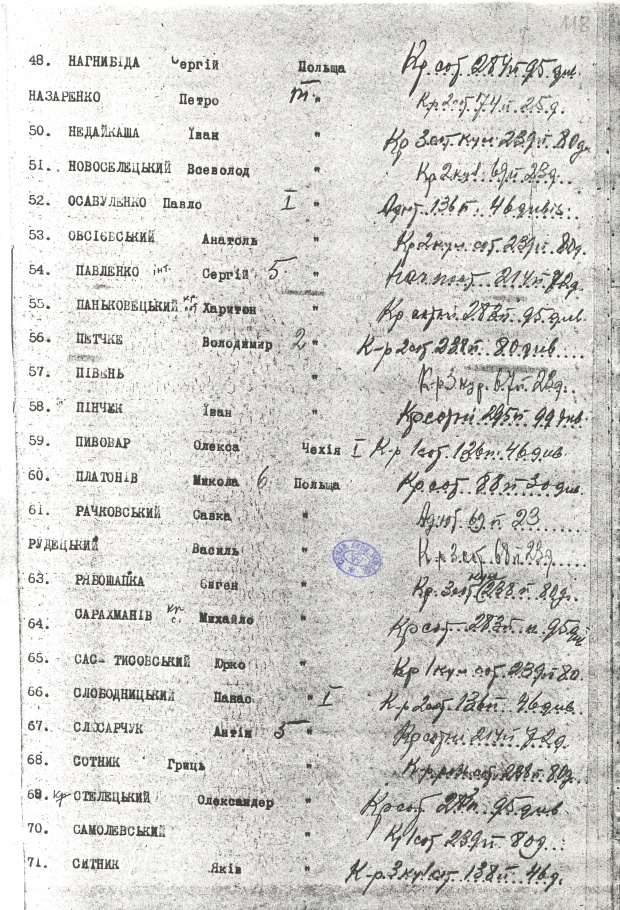 118
48. НАГНИБІДА Сергій Польща Кр. сот. 284п 95 див.
НАЗАРЕНКО Петро " Кр 2 сот. 74 п. 25 д.
50. НЕДАЙКАША Їван " Кр 3 сот кул 239 п 80 д.
51. НОВОСЕЛЕЦЬКИЙ Всеволод " Кр 2 кул. 69 п 23 д.
52. ОСАВУЛЕНКО Павло I " Адют. 136 п. 46 дивіз.
53. ОВСІЄВСЬКИЙ Анатоль " Кр 2 кул. сот. 239 п. 80 д.
54. ПАВЛЕНКО інт. Сергій 5 " 214 п 72 д.
55. ПАНЬКОВЕЦЬКИЙ Харитон " Кр 283 п. 95 див
56. ПЕТЧКЕ Володимир 2 " К-р 2 сот. 238 п. 80 див.
57. ПІВЕНЬ " К-р 3 кур. 67 п. 23 д.
58. ПІНЧУК Їван " Кр сотні 295 п 99 див.
59. ПИВОВАР Олекса Чехія I К-р 1 сот. 136 п. 46 див
60. ПЛАТОНІВ Микола 6 Польща Кр сот. 88 п 30 див.
61. РАЧКОВСЬКИЙ Савка " Адют. 69 п 23
РУДЕЦЬКИЙ Василь " К-р 3 сот. 68 п. 23 д.
63. РЯБОШАПКА Євген " Кр. 3 сот кул 238 п 80 д.
64. САРАХМАНІВ Михайло " Кр сот. 283 п. 95 див
65. САС- ТИСОВСЬКИЙ Юрко " Кр 1 кул сот. 239 п. 80.
66. СЛОБОДНИЦЬКИЙ Панас " I К-р 2 сот. 136 п. 46 див.
67. СЛЄСАРЧУК Антін 5 " Кр сотні 214 п 72 д.
68. СОТНИК Гриць " 80 д.
69. кр СТЕЛЕЦЬКИЙ Олександер " Кр сот. 95 див
70. САМОЛЕВСЬКИЙ " Кр 1 сот 239 п. 80 д.
71. СИТНИК Яків " К-р 3 кул сот. 138 п. 46 д.